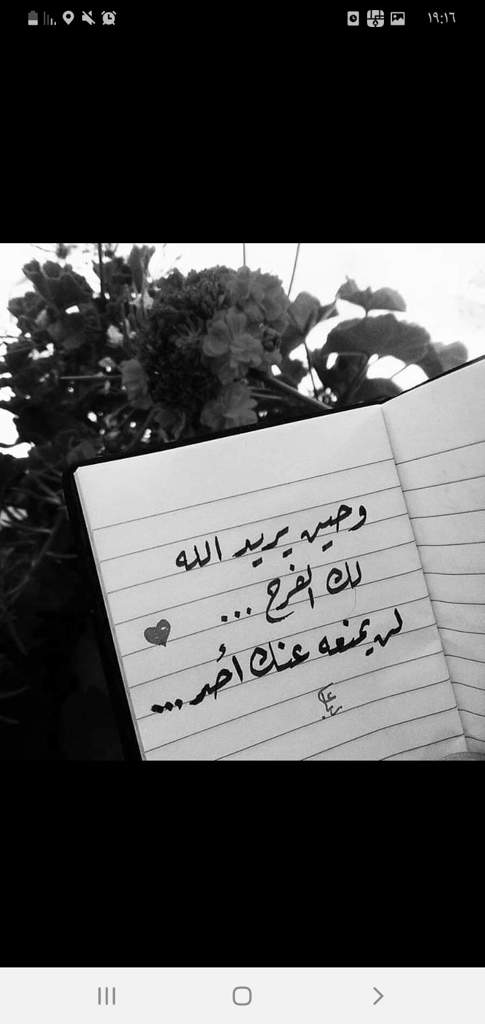 ١٩:١٦
وحين يريد الله
لك الفرح ...
لن يمنعه عنك أحد ...